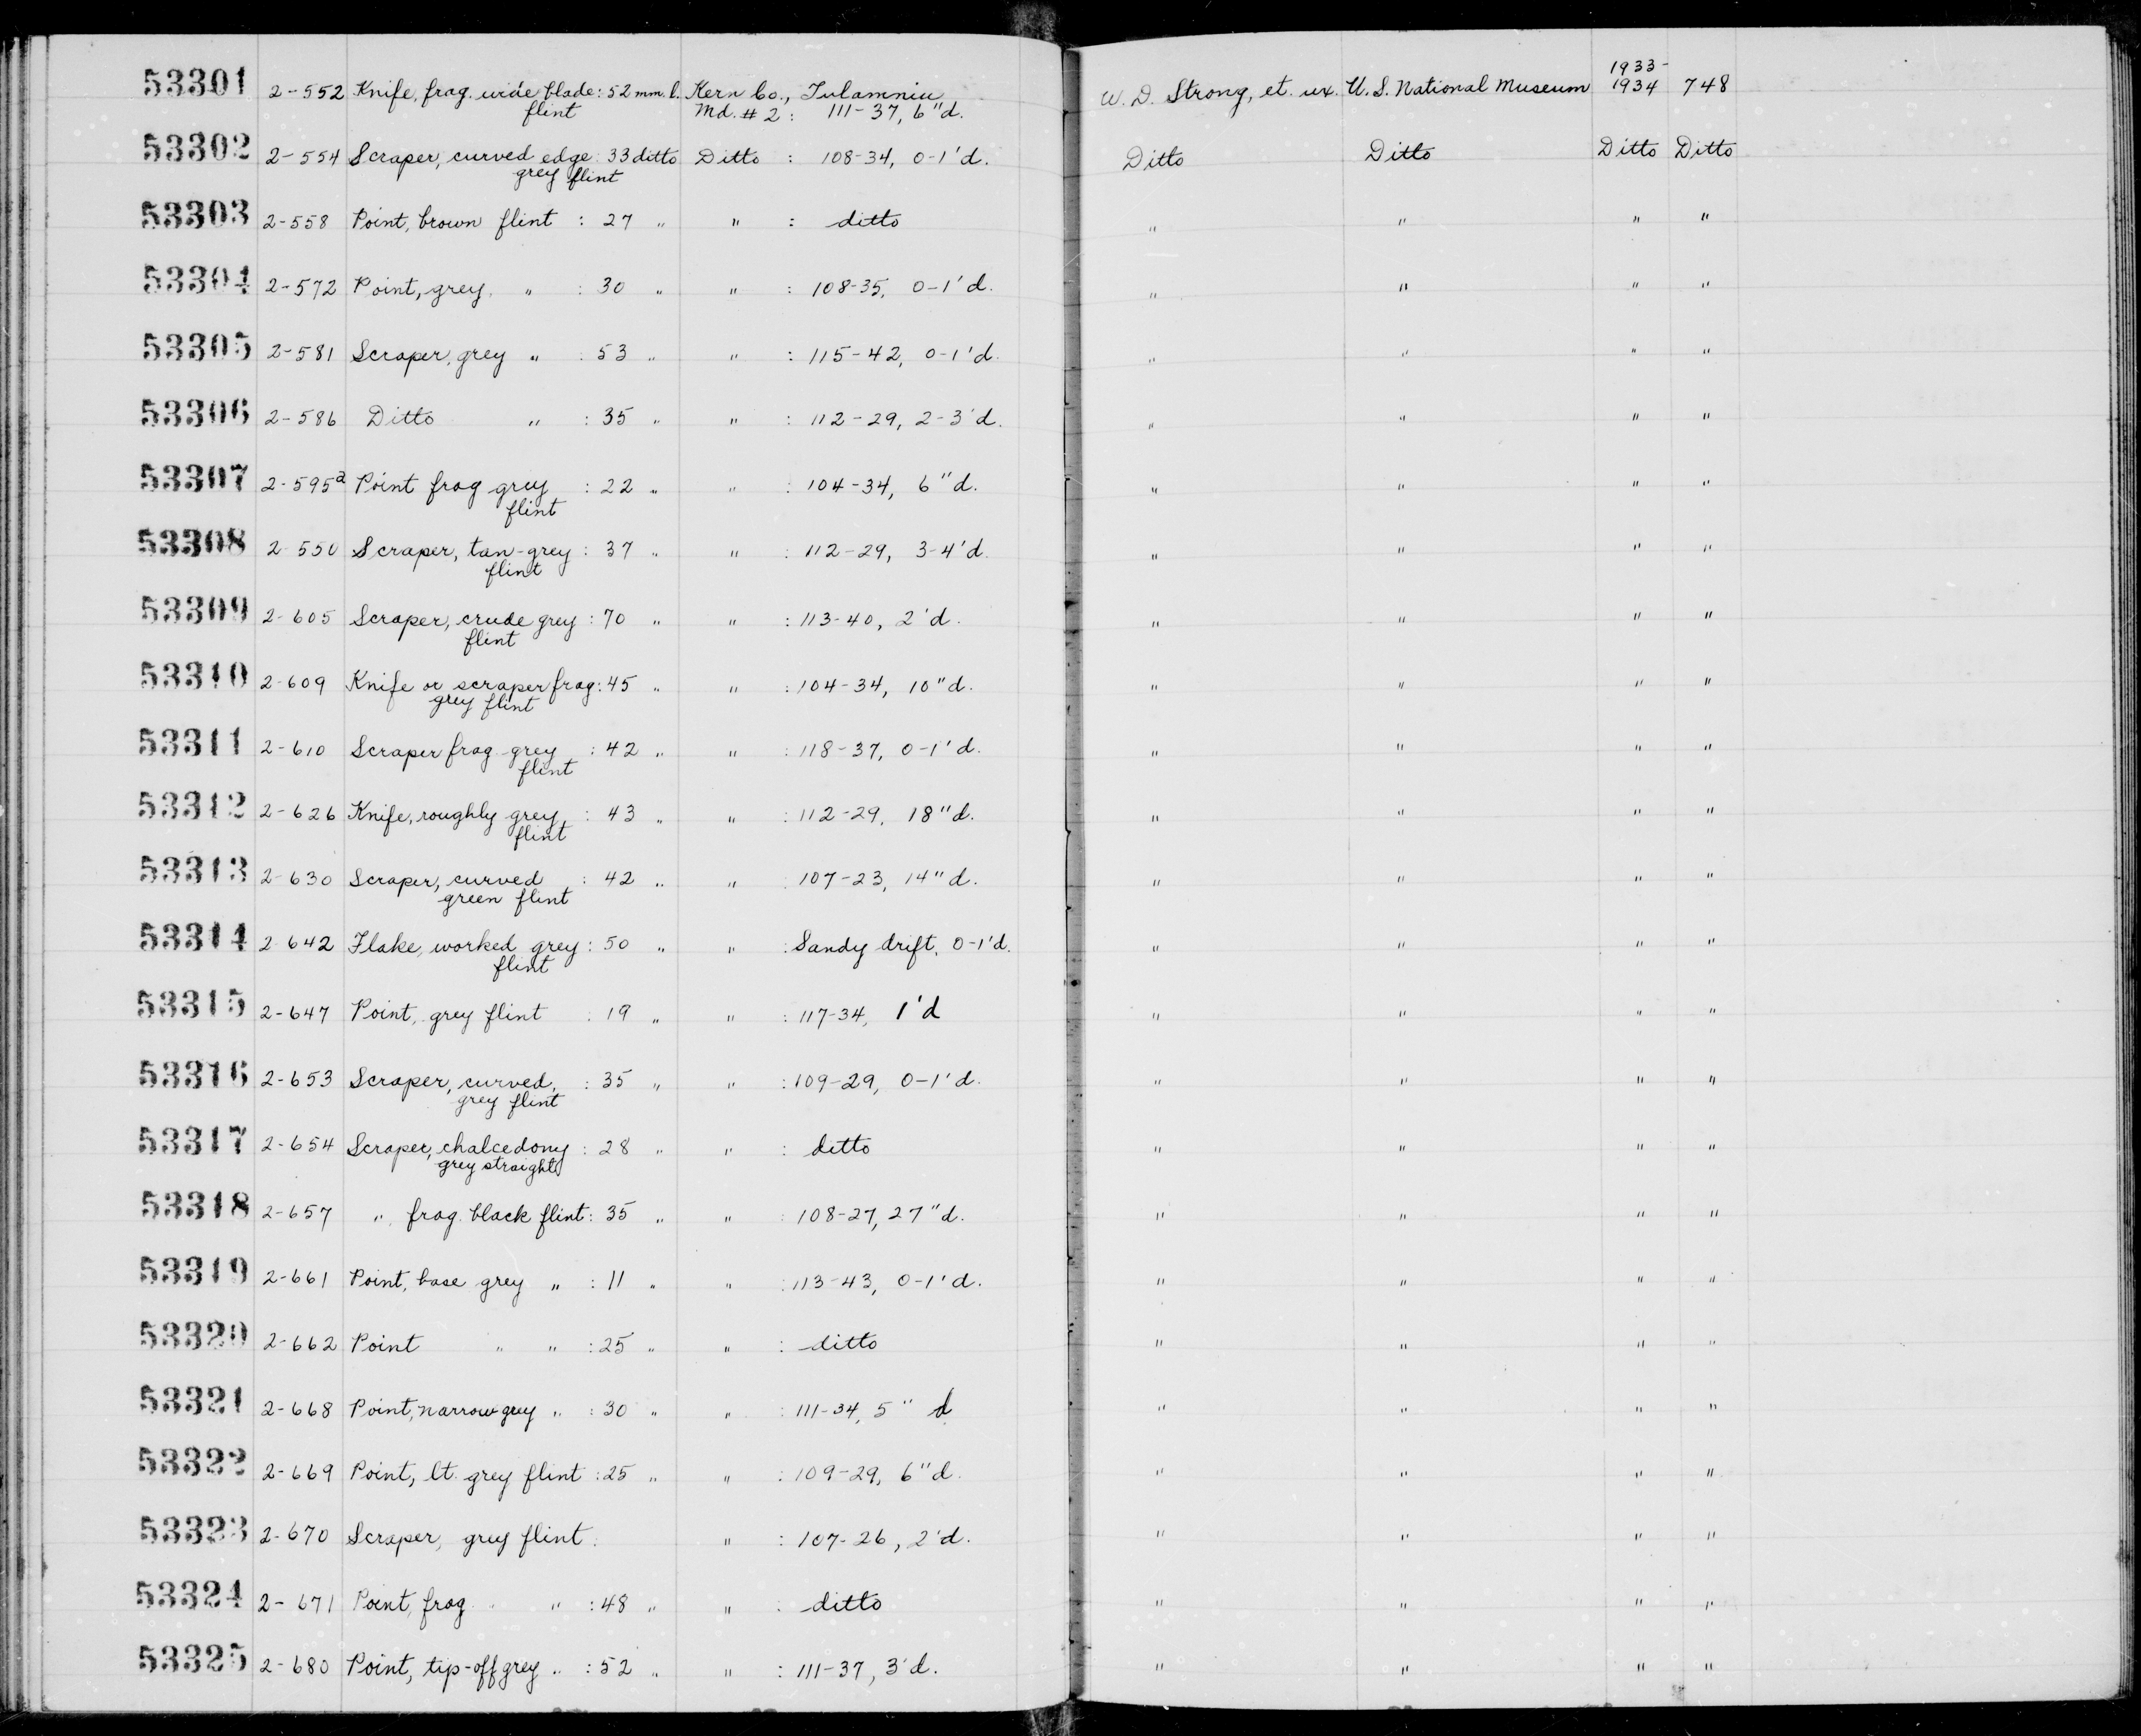 53301 2-552 Knife, frag. wide blade: 52 mm l. Kern Co., Tulamniu W. D. Strong, et. ux. U. S. National Museum 1933-1934 748
flint Md. # 2: 111-37, 6"d.
53302 2-554 Scraper, curved edge: 33 ditto Ditto : 108-34, 0-1'd. Ditto Ditto Ditto Ditto
grey flint
53303 2-558 Point, brown flint : 27 " " : ditto " " " "
53304 2-572 Point, grey " : 30 " " : 108-35, 0-1'd. " " " "
53305 2-581 Scraper, grey " : 53 " " : 115-42, 0-1'd. " " " "
53306 2-586 Ditto " : 35 " " : 112-29, 2-3'd. " " " "
53307 2-595a Point frag grey : 22 " " : 104-34, 6"d. " " " "
flint
53308 2-550 Scraper, tan-grey : 37 " " : 112-29, 3-4'd. " " " "
flint
53309 2-605 Scraper, crude grey : 70 " " : 113-40, 2'd. " " " "
flint
53310 2-609 Knife or scraper frag: 45 " " : 104-34, 10"d. " " " "
grey flint
53311 2-610 Scraper frag. grey : 42 " " : 118-37, 0-1'd. " " " "
flint
53312 2-626 Knife, roughly grey : 43 " " : 112-29, 18"d. " " " "
flint
53313 2-630 Scraper, curved : 42 " " : 107-23, 14"d. " " " "
green flint
53314 2-642 Flake, worked grey : 50 " " : Sandy drift, 0-1'd. " " " "
flint
53315 2-647 Point, grey flint : 19 " " : 117-34, 1'd " " " "
53316 2-653 Scraper, curved, : 35 " " : 109-29, 0-1'd. " " " "
grey flint
53317 2-654 Scraper, chalcedony : 28 " " : ditto " " " "
grey straight
53318 2-657 " frag. black flint: 35 " " : 108-27, 27"d. " " " "
53319 2-661 Point, base grey " : 11 " " : 113-43, 0-1'd. " " " "
53320 2-662 Point " " : 25 " " : ditto " " " "
53321 2-668 Point, narrow grey " : 30 " " : 111-34, 5" d " " " "
53322 2-669 Point, lt. grey flint : 25 " " : 109-29, 6"d. " " " "
53323 2-670 Scraper, grey flint : " : 107-26, 2'd. " " " "
53324 2-671 Point, frag " " : 48 " " : ditto " " " "
53325 2-680 Point, tip-off grey " : 52 " " : 111-37, 3'd. " " " "